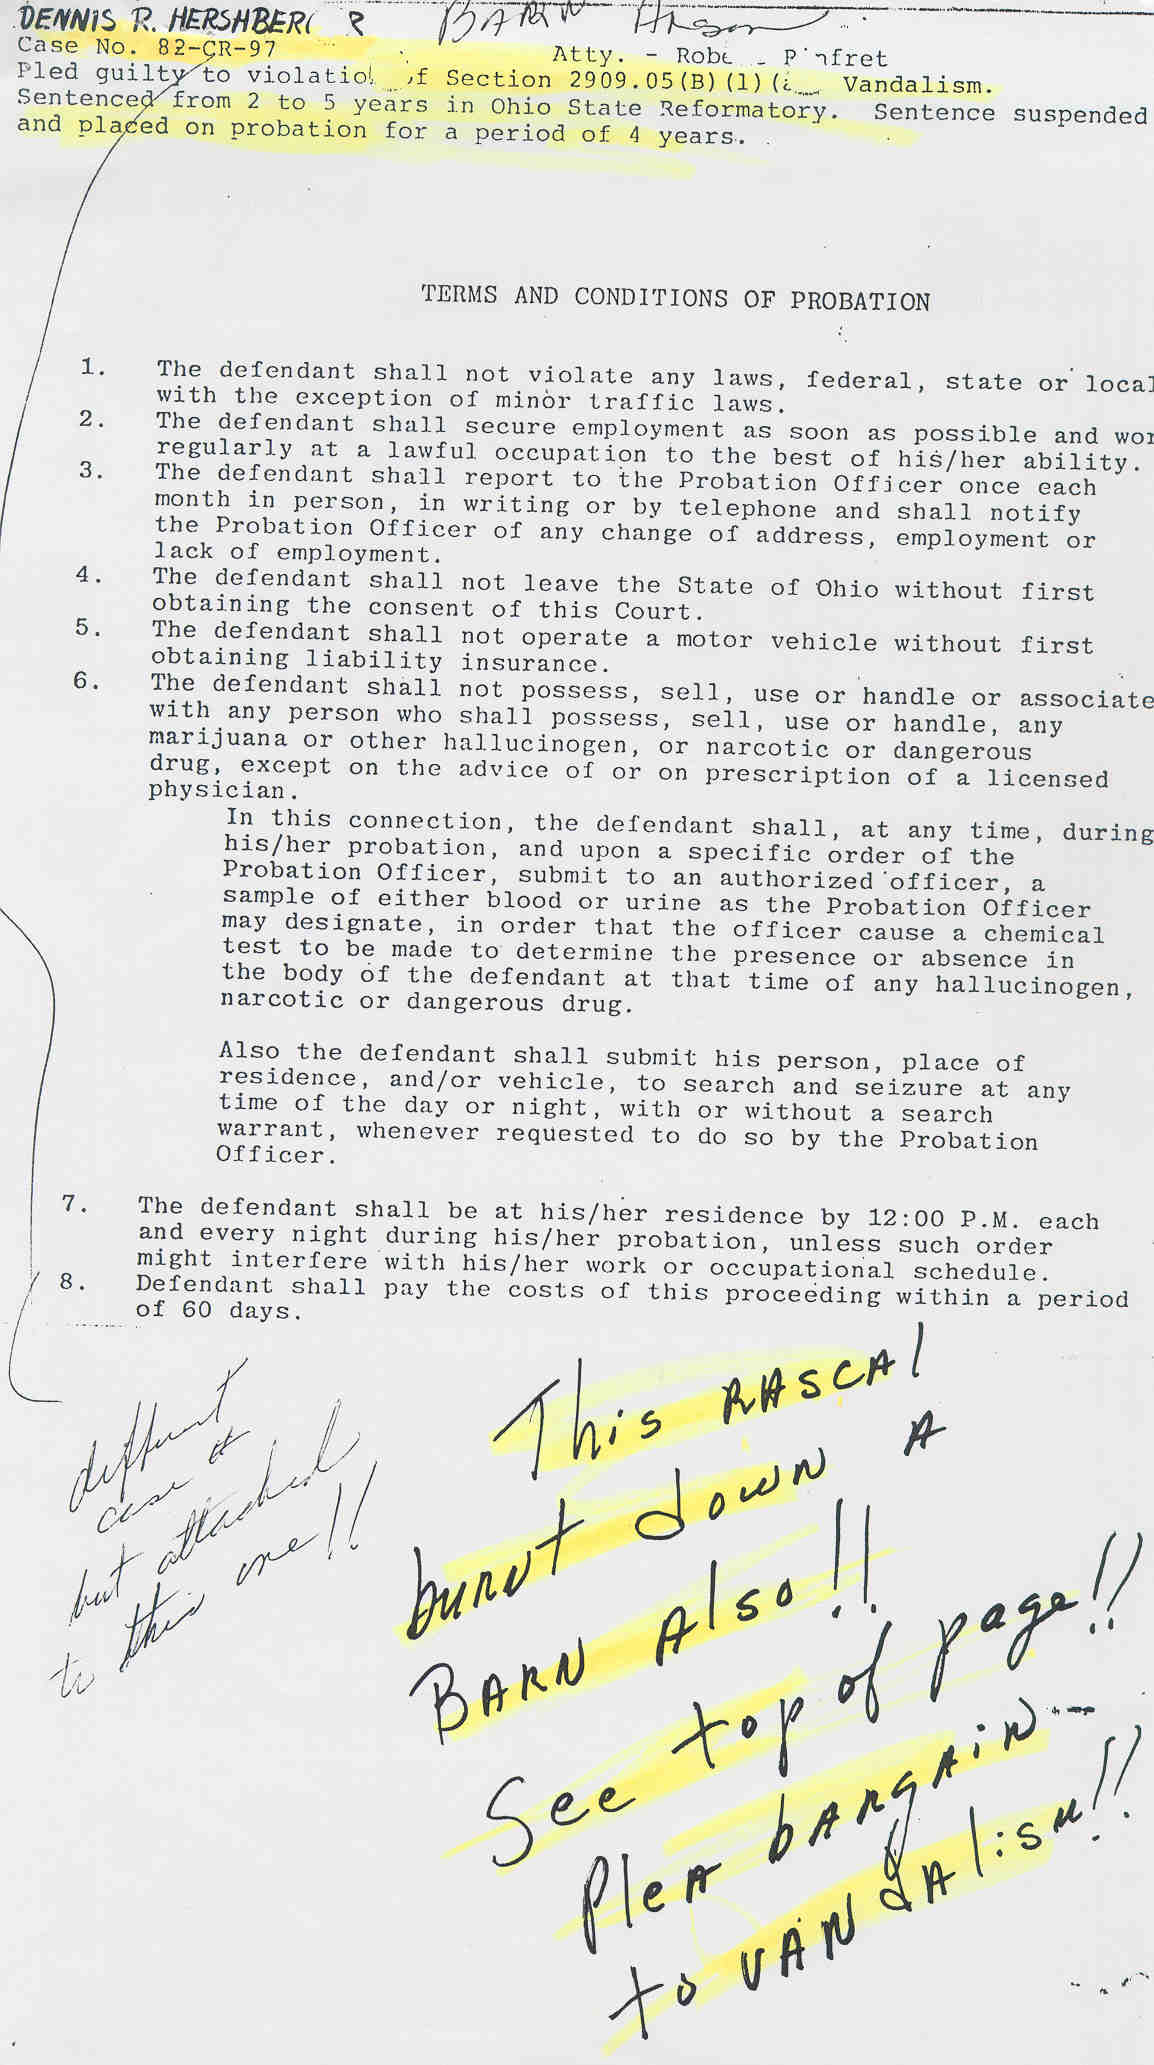 DENNIS R. HERSHBER R BARN Arson
Case No. 82-CR-97 Atty. - Robe
Pled guilty to violatio of Section 2909.05(B)(1)( Vandalism.
Sentenced from 2 to 5 years in Ohio State Reformatory. Sentence suspended
and placed on probation for a period of 4 years.
TERMS AND CONDITIONS OF PROBATION
1. The defendant shall not violate any laws, federal, state or local
with the exception of minor traffic laws.
2. The defendant shall secure employment as soon as possible and wor
regularly at a lawful occupation to the best of his/her ability.
3. The defendant shall report to the Probation Officer once each
month in person, in writing or by telephone and shall notify
the Probation Officer of any change of address, employment or
lack of employment.
4. The defendant shall not leave the State of Ohio without first
obtaining the consent of this Court.
5. The defendant shall not operate a motor vehicle without first
obtaining liability insurance.
6. The defendant shall not possess, sell, use or handle or associate
with any person who shall possess, sell, use or handle, any
marijuana or other hallucinogen, or narcotic or dangerous
drug, except on the advice of or on prescription of a licensed
physician.
In this connection, the defendant shall, at any time, during
his/her probation, and upon a specific order of the
Probation Officer, submit to an authorized officer, a
sample of either blood or urine as the Probation Officer
may designate, in order that the officer cause a chemical
test to be made to determine the presence or absence in
the body of the defendant at that time of any hallucinogen,
narcotic or dangerous drug.
Also the defendant shall submit his person, place of
residence, and/or vehicle, to search and seizure at any
time of the day or night, with or without a search
warrant, whenever requested to do so by the Probation
Officer.
7. The defendant shall be at his/her residence by 12:00 P.M. each
and every night during his/her probation, unless such order
might interfere with his/her work or occupational schedule.
8. Defendant shall pay the costs of this proceeding within a period
of 60 days.
different
case #
but attached
to this one!!
This RASCAl
burnt down A
BARN Also!!
See top of page!!
Plea bargain--
to VANdAlism!!